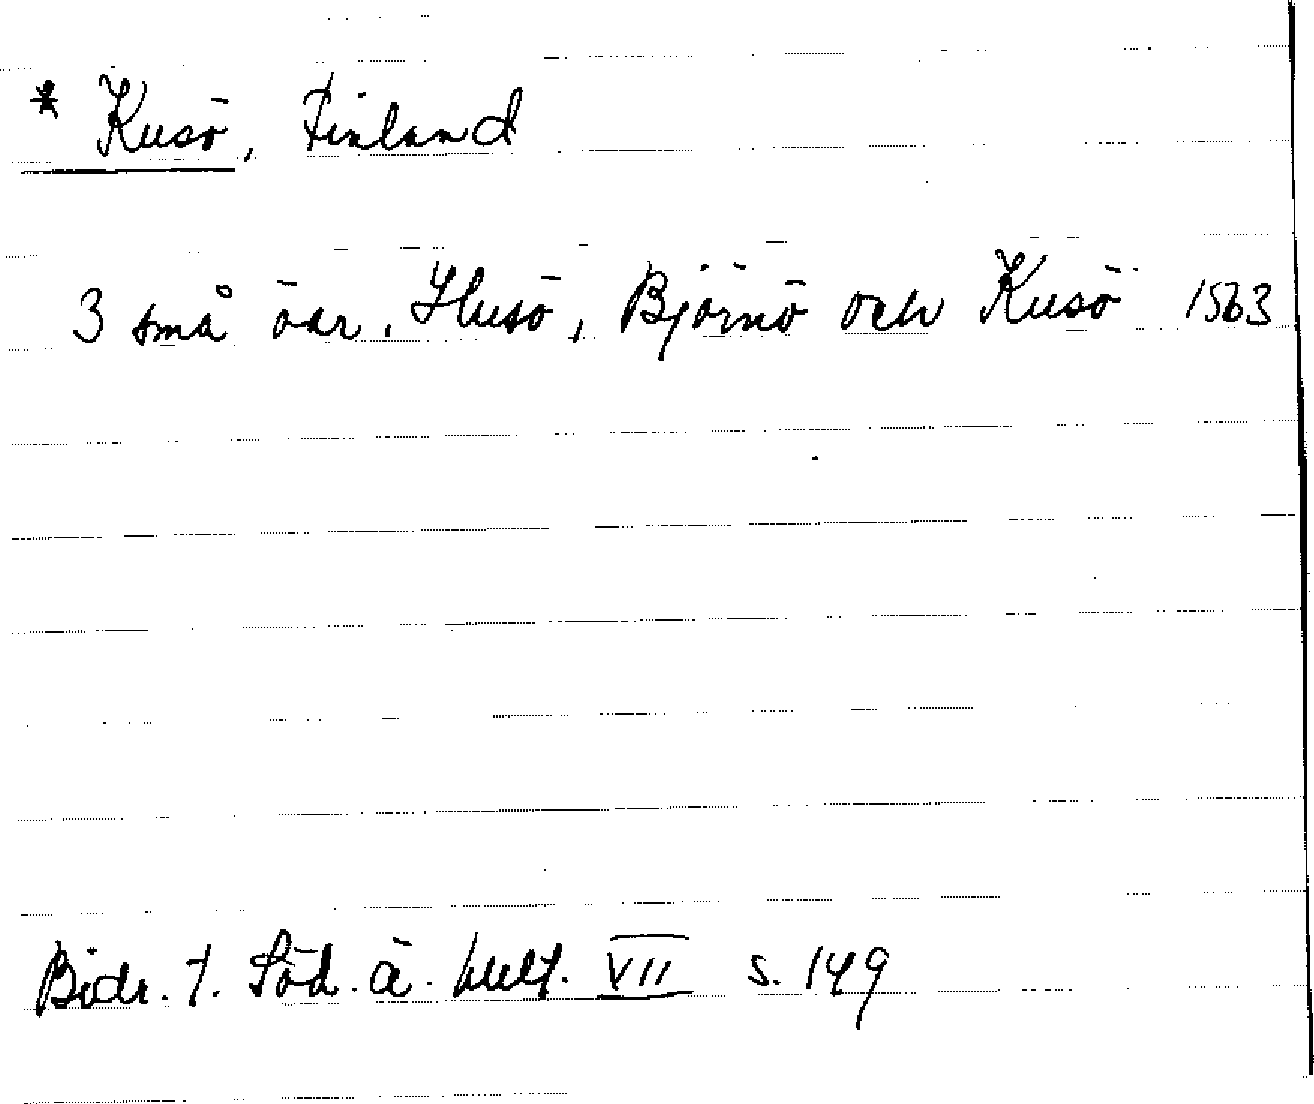 * Kusö, Finland
3 små öar. Husö, Björnö och Kusö 1563
Bidr. t. Söd. ä. kult. VII s. 149